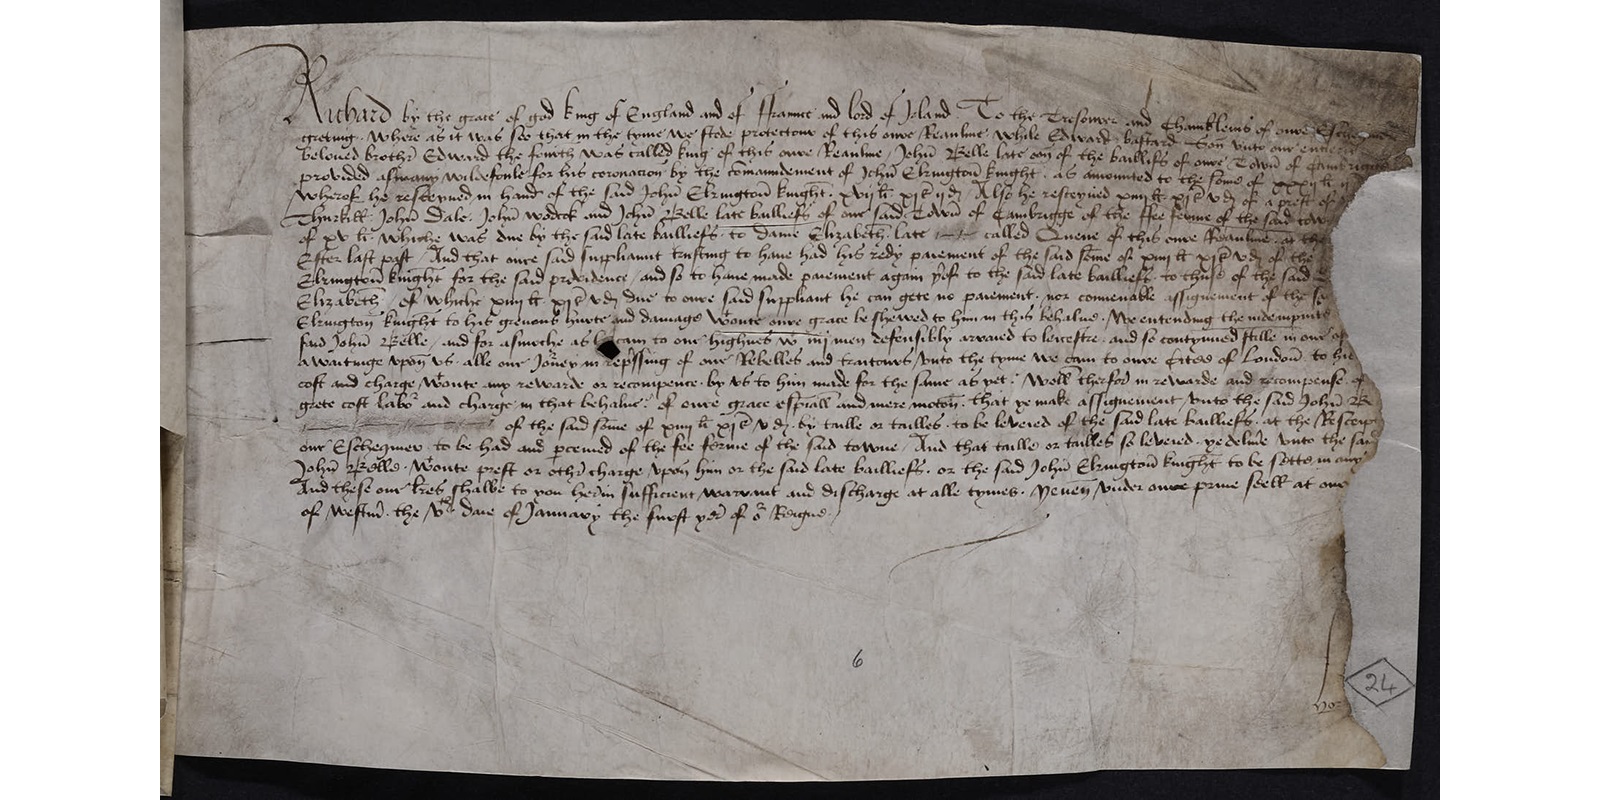 Richard by the grace of god king of England and of ffraunce and lord of Irland. To the Tresourer and Chambleins of oure Eschequier
greting. Where as it was soo that in the tyme we stode protectour of this oure Reaulme while Edward bastard Son unto our entierly
beloued brothr Edward the fourth was called king of this oure Reaulme, John Belle late oon of the baillifs of oure Town of Cambrigge
provided asmany wildefoule for his coronacion by the comaundement of John Elrington knight, as amounted to the some of xxxij li
Wherof he resceyued in hand of the said John Elrington knight. xvij li xjs ijd. Also he resceyued xiiij li xjs vd of a prest of
Thirkill John Dale. John Wodcok and John Belle late bailliefs of our said Town of Cambrigge of the ffee ferme of the said town
of xv li. whiche was due by the said late bailliefs, to Dame Elizabeth late called Quene of this oure Reaulme. at the
Ester last past, And that oure said suppliaunt trusting to haue had his redy paiement of the said some of xiiij li xjs vd of the
Elrington knight for the said providence, and so to haue made paiement again therof to the said late bailliefs, to thuse of the said
Elizabeth, of whiche xiiij li xjs vd due to oure said suppliant he can gete no paiement, nor conuenable assignement of the said
Elrington knight to his greuous hurte and damage Woute oure grace be shewed to him in this behalue. We entending the indempnite
said John Belle, and for asmoche as he cam to our highnes w iiij men defensibly arraied to leicestre, and so contynued stille in our
awaitinge upon us, alle our Jorney in repssing of our Rebelles and traitours, unto the tyme we cam to oure Citee of London, to his
cost and charge Woute any rewarde or recompence. by us to him made for the same as yet. Woll therfor in rewarde and recompense, of
grete cost labor and charge in that behalue. of oure grace espiall and mere mocon. that ye make assignement unto the said John Be
of the said some of xiiij li xjs vd, by taille or tailles. to be levered of the said late bailliefs. at the Resceipt
our Eschequier to be had and pceiued of the fee ferme of the said towne, And that taille or tailles so levered, ye deliue unto the said
John Belle. Woute prest or othr charge upon him or the said late bailliefs. or the said John Elrington knight to be sette in any
And these our lres shalbe to you herin sufficient warrant and discharge at alle tymes. Yeuen under oure priue seell at our
of Westm. the vth daie of January the furst yer of or Reigne.
6
24